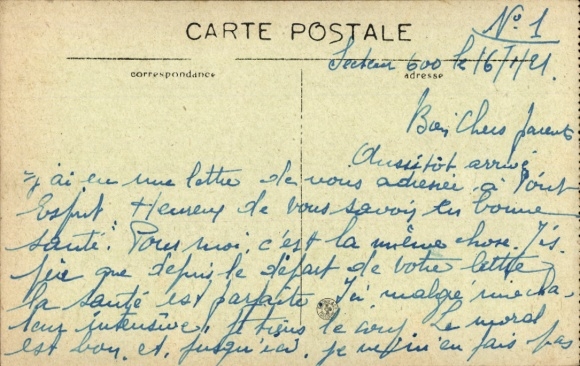 CARTE POSTALE
N° 1
correspondance
adresse
Secteur 600 le 16/1/21.
Bien Chers parents
Aussitôt arrivé
j'ai eu une lettre de vous adressée à Pont
Esprit Heureux de vous savoir en bonne
santé. Pour moi, c'est la même chose. J'es-
père que depuis le départ de votre lettre
la santé est parfaite Ici, malgré une cha-
leur intensive, je tiens le coup. Le moral
est bon, et, jusqu'ici, je ne m'en fais pas